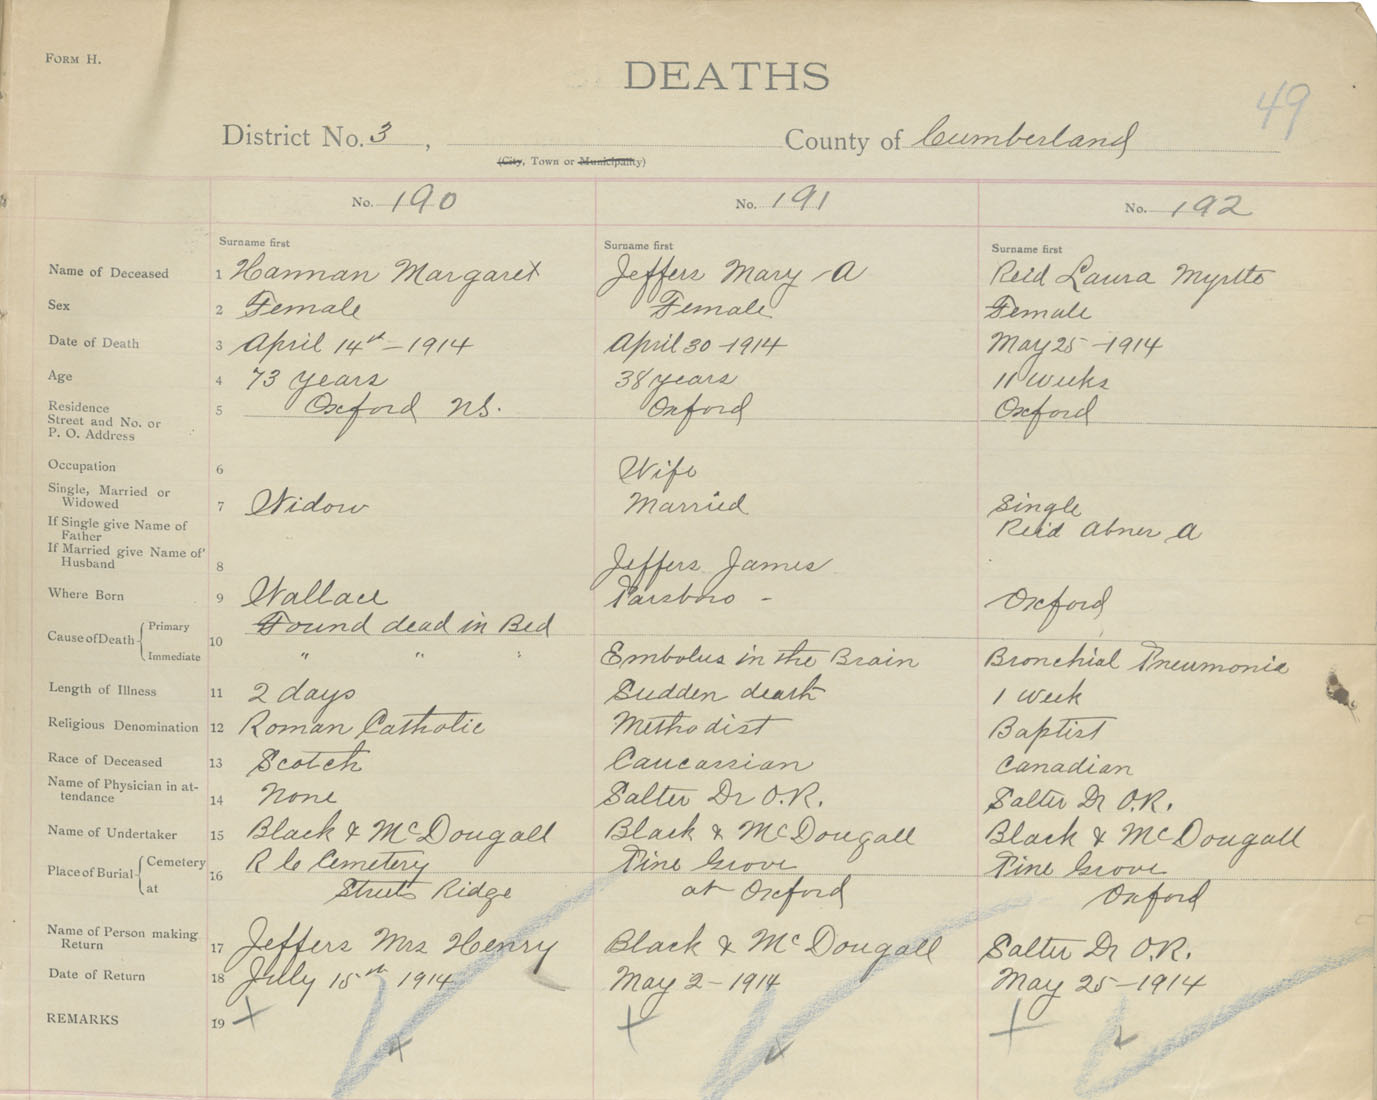 FORM H.
DEATHS
49
District No. 3, County of Cumberland
(City, Town or Municipality)
No. 190 No. 191 No. 192
Surname first Surname first Surname first
Name of Deceased 1 Hannan Margaret Jeffers Mary A Reid Laura Myrtle
Sex 2 Female Female Female
Date of Death 3 April 14th - 1914 April 30 - 1914 May 25 - 1914
Age 4 73 years 38 years 11 weeks
Residence
Street and No. or
P. O. Address 5 Oxford NS. Oxford Oxford
Occupation 6 Wife
Single, Married or
Widowed 7 Widow Married Single
If Single give Name of
Father Reid Abner A
If Married give Name of
Husband 8 Jeffers James
Where Born 9 Wallace Parsboro - Oxford
Cause of Death Primary 10 Found dead in Bed
Immediate " " " Embolus in the Brain Bronchial Pneumonia
Length of Illness 11 2 days Sudden death 1 week
Religious Denomination 12 Roman Catholic Methodist Baptist
Race of Deceased 13 Scotch Caucassian Canadian
Name of Physician in at-
tendance 14 None Salter Dr O.R. Salter Dr O.R.
Name of Undertaker 15 Black & McDougall Black & McDougall Black & McDougall
Place of Burial Cemetery 16 R C Cemetery Pine Grove Pine Grove
at Streets Ridge at Oxford Oxford
Name of Person making
Return 17 Jeffers Mrs Henry Black & McDougall Salter Dr O.R.
Date of Return 18 July 15th 1914 May 2 - 1914 May 25 - 1914
REMARKS 19 x x x
x x